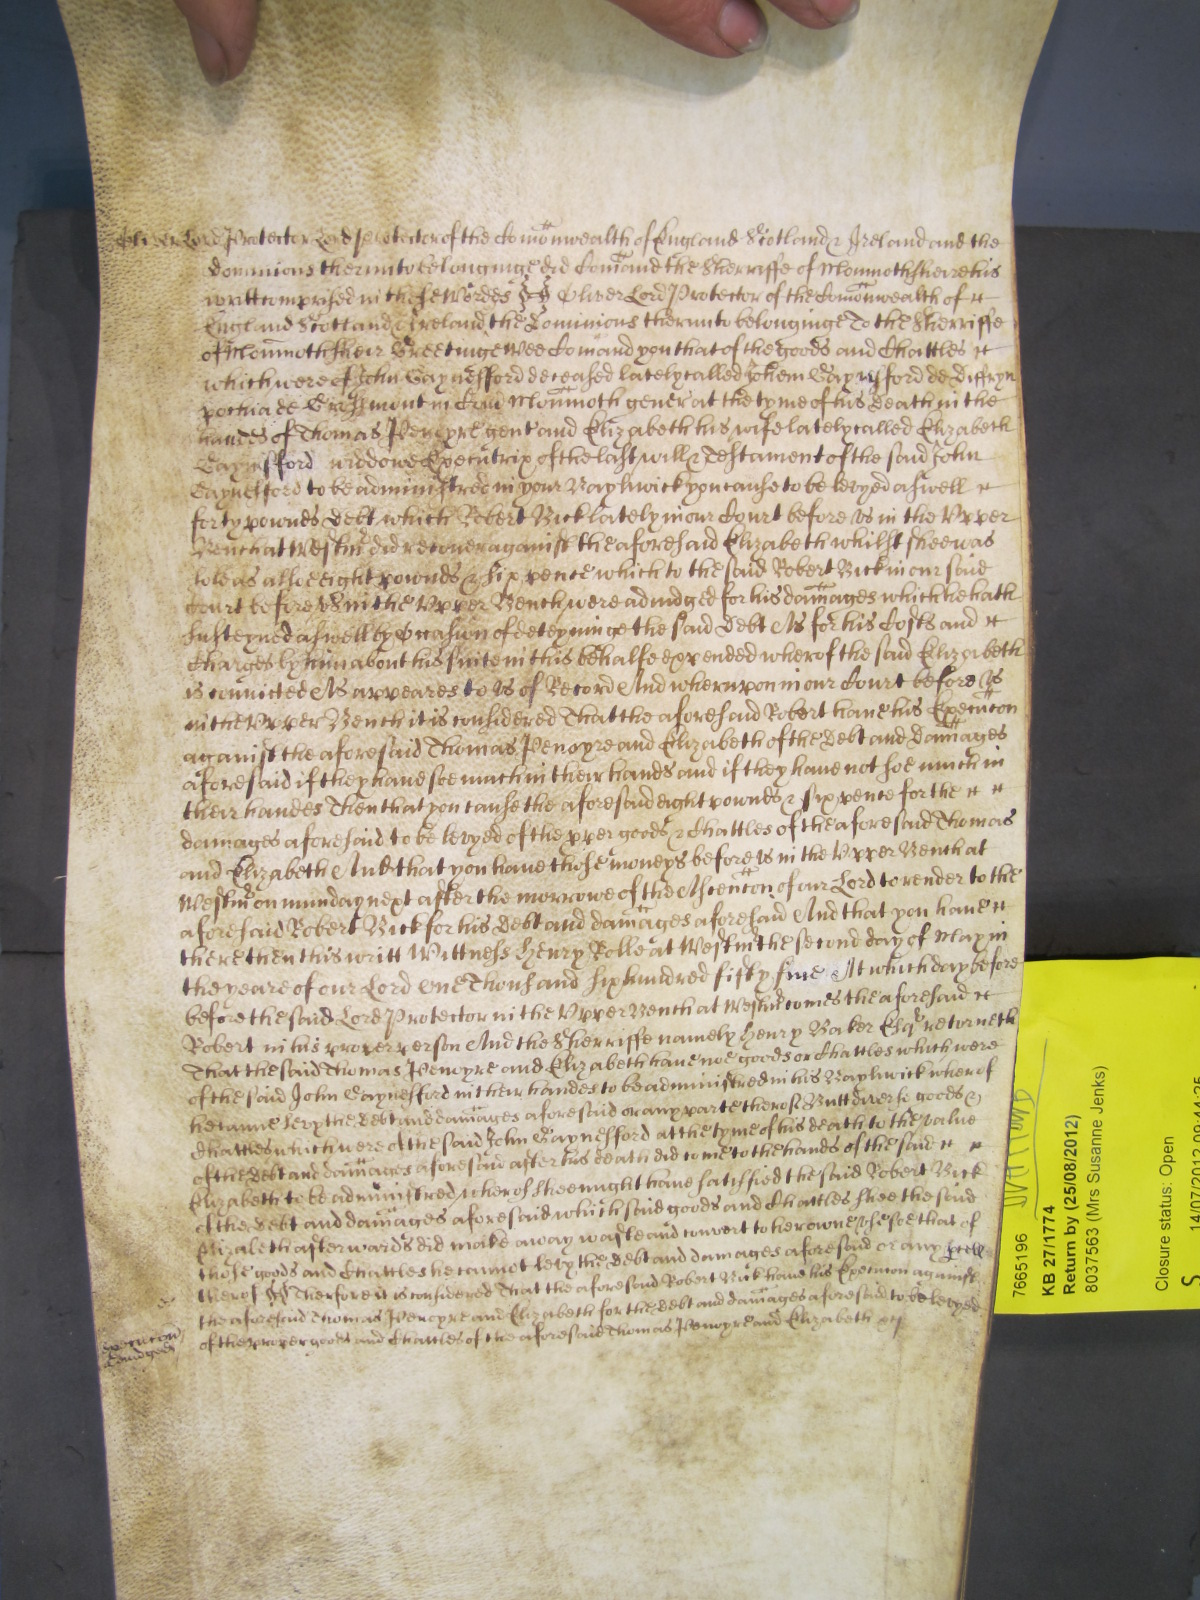 Oliver Lord Protector Lord Protector of the Comonwealth of England Scotland & Ireland and the
dominions therunto belonginge did Comand the Sherriffe of Monmothsheire his
writt comprised in these Wordes ss Oliver Lord Protector of the Comonwealth of
England Scotland & Ireland the Dominions therunto belonginge To the Sherriffe
of Monmothsheir Greetinge Wee Comand you that of the goods and Chattles
which were of John Gaynesford deceased lately called Johem Gaynsford de Diffryn
pochia de Grosmont in Com Monmoth gener at the tyme of his death in the
handes of Thomas Penoyre gent and Elizabeth his wife lately called Elizabeth
Gaynsford widdowe Executrix of the last will & Testament of the said John
Gaynesford to be administred in your Baylywick you cause to be levyed aswell
forty pownds debt which Robert Bick lately in our Court before us in the Upper
Bench at Westmr did recover against the aforesaid Elizabeth whilst shee was
sole as allsoe eight pownds & six pence which to the said Robert Bick in our said
Court before us in the Upper Bench were adiudged for his damages which he hath
susteyned aswell by Occasion of deteyninge the said debt As for his Costs and
Charges by him about his suite in this behalfe expended wherof the said Elizabeth
is convicted As appeares to us of Record And wherupon in our Court before us
in the Upper Bench it is considered That the aforesaid Robert have his Execucon
against the aforesaid Thomas Penoyre and Elizabeth of the debt and damages
aforesaid if they have soe much in their hands and if they have not soe much in
their handes Then that you cause the aforesaid eight pownds & six pence for the
damages aforesaid to be levyed of the pper goods & Chattles of the aforesaid Thomas
and Elizabeth And that you have those moneys before us in the Upper Bench at
Westmr on munday next after the morrowe of the Ascencon of our Lord to render to the
aforesaid Robert Bick for his debt and damages aforesaid And that you have
there then this writt Wittness Henry Rolle at Westmr the second day of May in
the yeare of our Lord One Thousand six hundred fifty five At which day before
before the said Lord Protector in the Upper Bench at Westmr comes the aforesaid
Robert in his proper person And the Sherriffe namely Henry Baker Esqr returneth
That the said Thomas Penoyre and Elizabeth have noe goods or Chattles which were
of the said John Gaynesford in their handes to be administred in his Baylywick wherof
he can levy the debt and damages aforesaid or any parte therof Butt diverse goods &
Chattles which were of the said John Gaynesford at the tyme of his death to the value
of the debt and damages aforesaid after his death did come to the hands of the said
Elizabeth to be administred wherof shee might have satisfied the said Robert Bick
of the debt and damages aforesaid which said goods and Chattles shee the said
Elizabeth afterwards did make away wast and convert to her owne use soe that of
those goods and Chattles he cannot levy the debt and damages aforesaid or any
therof Therfore it is considered That the aforesaid Robert Bick have his Execucon against
the aforesaid Thomas Penoyre and Elizabeth for the debt and damages aforesaid to be levyed
of the proper goods and Chattles of the aforesaid Thomas Penoyre and Elizabeth
execucon
adiudged
7665196
KB 27/1774
Return by (25/08/2012)
8037563 (Mrs Susanne Jenks)
Closure status: Open